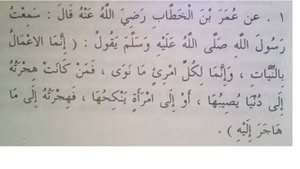 ١ . عن عُمَرَ بْنَ الْخَطَّابِ رَضِيَ اللَّهُ عَنْهُ قَالَ : سَمِعْتُ
رَسُولَ اللَّهِ صَلَّى اللَّهُ عَلَيْهِ وَسَلَّمَ يَقُولُ : ( إِنَّمَا الْاعْمَالُ
بِالنِّيَّاتِ ، وَإِنَّمَا لِكُلِّ امْرِئٍ مَا نَوَى ، فَمَنْ كَانَتْ هِجْرَتُهُ
إِلَى دُنْيَا يُصِيبُهَا ، أَوْ إِلَى امْرَأَةٍ يَنْكِحُهَا ، فَهِجْرَتُهُ إِلَى مَا
هَاجَرَ إِلَيْهِ ) .